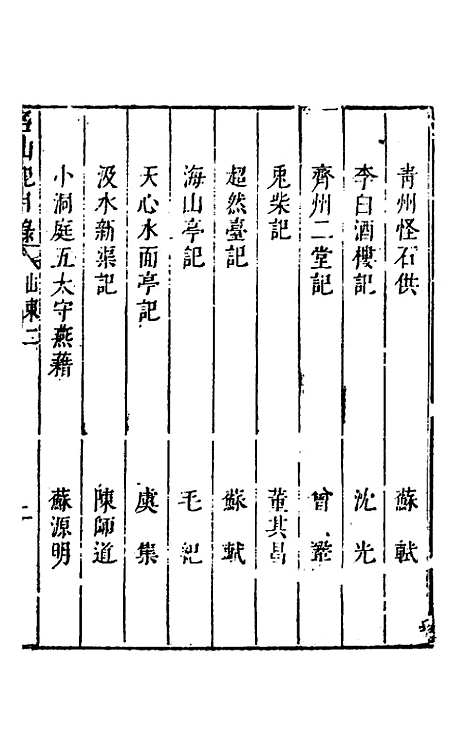 青州怪石供 蘇軾
李白酒樓記 沈光
齊州二堂記 曾鞏
兎柴記 董其昌
超然臺記 蘇軾
海山亭記 毛紀
天心水面亭記 虞集
汲水新渠記 陳師道
小洞庭五太守燕藉 蘇源明
名山記目錄 山東二 二